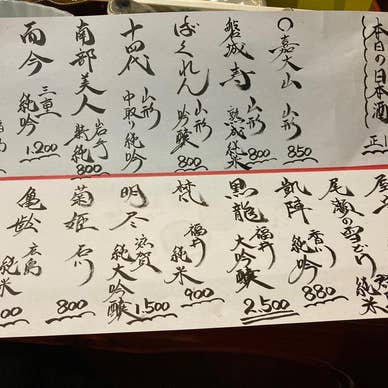 本日の日本酒
○嘉大山 山形 850
磐城寿 山形 熟成純米 800
ばくれん 山形 吟醸 800
十四代 山形 中取り純吟
南部美人 岩手 純吟 800
而今 三重 純吟 1.200
尾瀬の雪どけ 純米
凱陣 香川 純吟 880
黒龍 福井 大吟醸 2.500
梵 福井 純米 900
明尽 滋賀 純大吟醸 1.500
菊姫 石川 800
亀齢 広島 純米 00